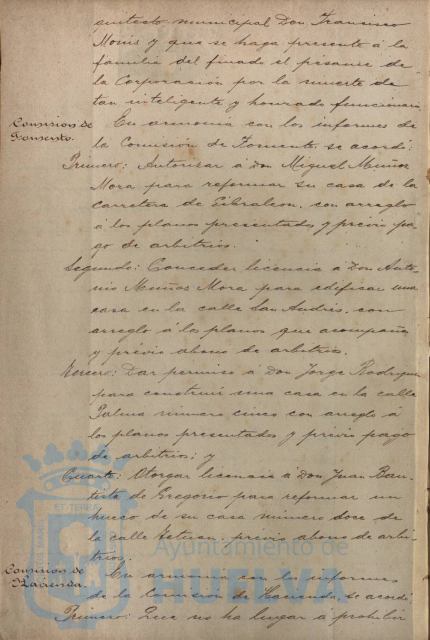 quitecto municipal Don Francisco
Monis y que se haga presente á la
familia del finado el pésame de
la Corporación por la muerte de
tan inteligente y honrado funcionario
Comision de
Fomento.
En armonia con los informes de
la Comisión de Fomento, se acordó:
Primero: Autorizar á Don Miguel Muñoz
Mora para reformar su casa de la
carretera de Gibraleon, con arreglo
á los planos presentados y previo pa-
go de arbitrios.
Segundo: Conceder licencia á Don Anto-
nio Muñoz Mora para edificar una
casa en la calle San Andrés, con
arreglo á los planos que acompaña
y prévio abono de arbitrios.
Tercero: Dar permiso á Don Jorge Rodriguez
para construir una casa en la calle
Palma número cinco con arreglo á
los planos presentados y previo pago
de arbitrios; y
Cuarto: Otorgar licencia á Don Juan Bau-
tista de Gregorio para reformar un
hueco de su casa número doce de
la calle Tetuan, previo abono de arbi-
trios.
Comision de
Hacienda.
En armonia con los informes
de la Comisión de Hacienda, se acordó:
Primero: Que no ha lugar á prohibir
Ayuntamiento de
HUELVA